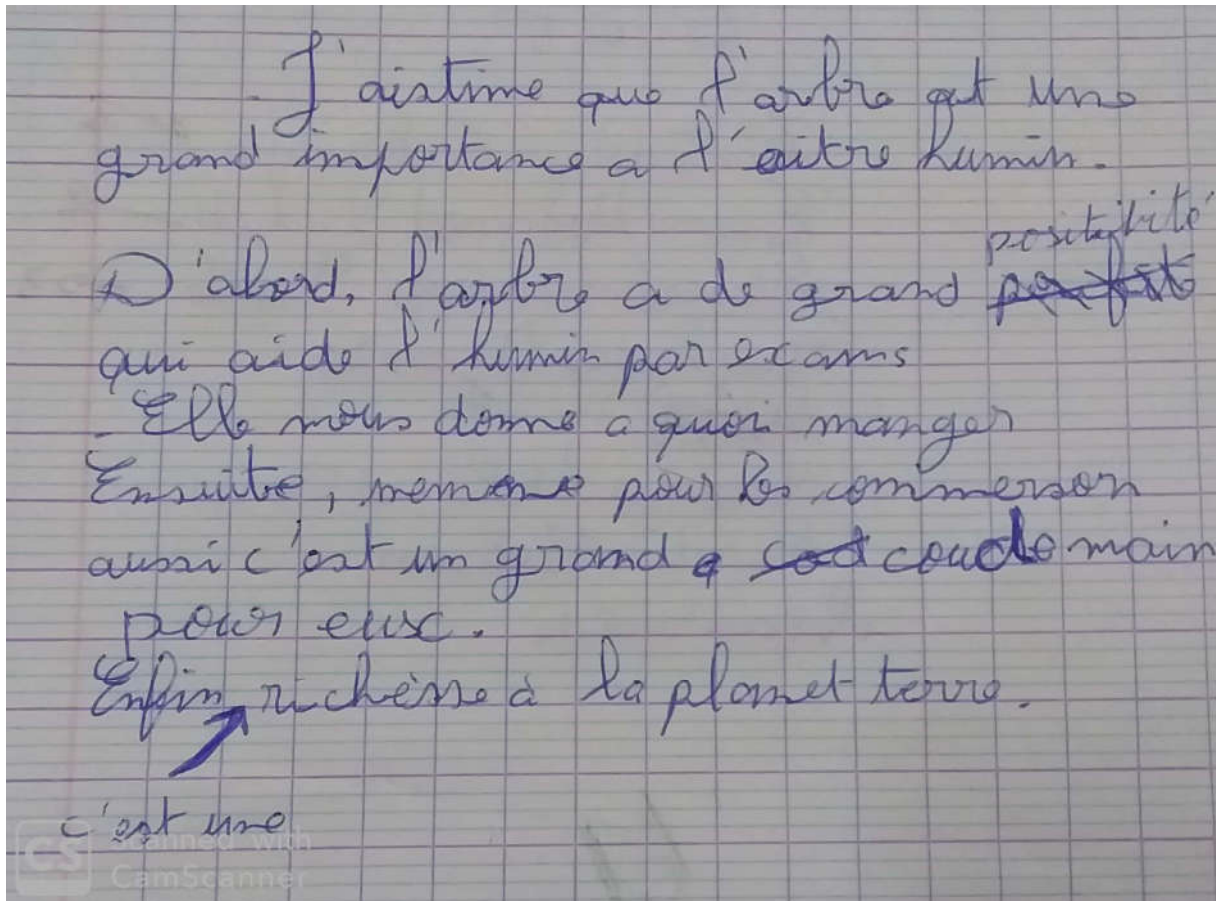 J'aistime que l'arbre est une
grand importance a l'eitre humin.
positibité
D'abord, l'arbre a de grand
qui aide l'humin par exams
- Elle nous donne a quoi manger
Ensuite, mememe pour les commerson
aussi c'est un grand coude main
pour eux.
Enfin richèsse à la planet terre.
c'est une
CS Scanned with
CamScanner